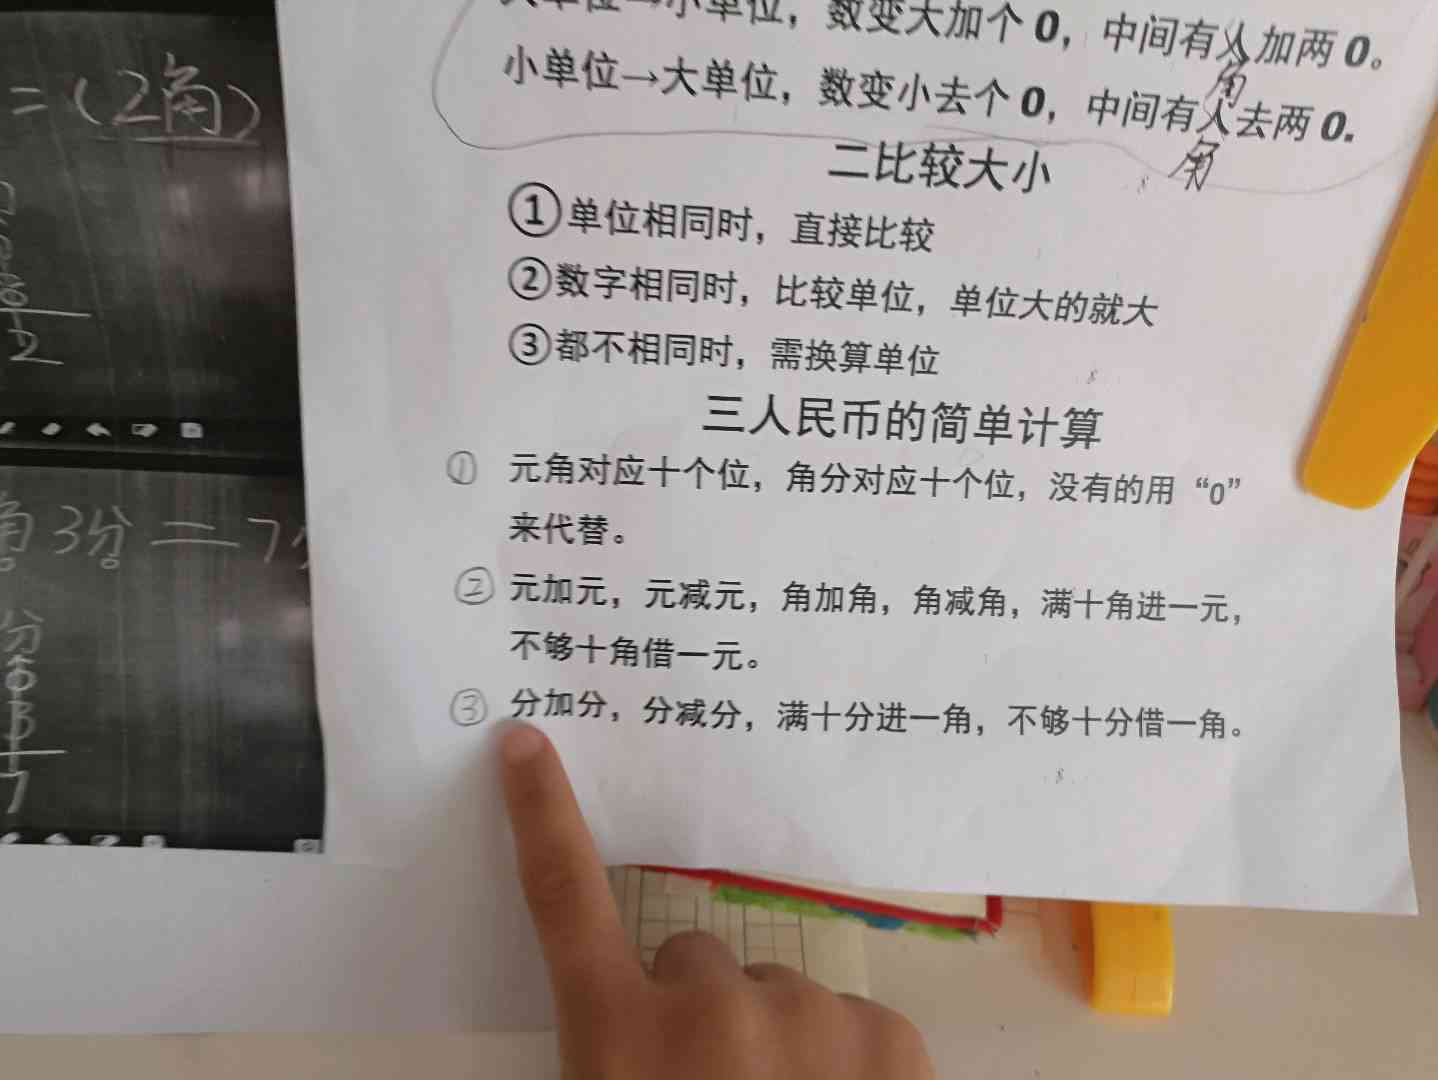 大单位→小单位，数变大加个0，中间有人加两0。
角
小单位→大单位，数变小去个0，中间有人去两0.
角
二比较大小
①单位相同时，直接比较
②数字相同时，比较单位，单位大的就大
③都不相同时，需换算单位
三人民币的简单计算
① 元角对应十个位，角分对应十个位，没有的用“0”
来代替。
② 元加元，元减元，角加角，角减角，满十角进一元，
不够十角借一元。
③ 分加分，分减分，满十分进一角，不够十分借一角。
=(2角)
2
角3分=7
分
3
7